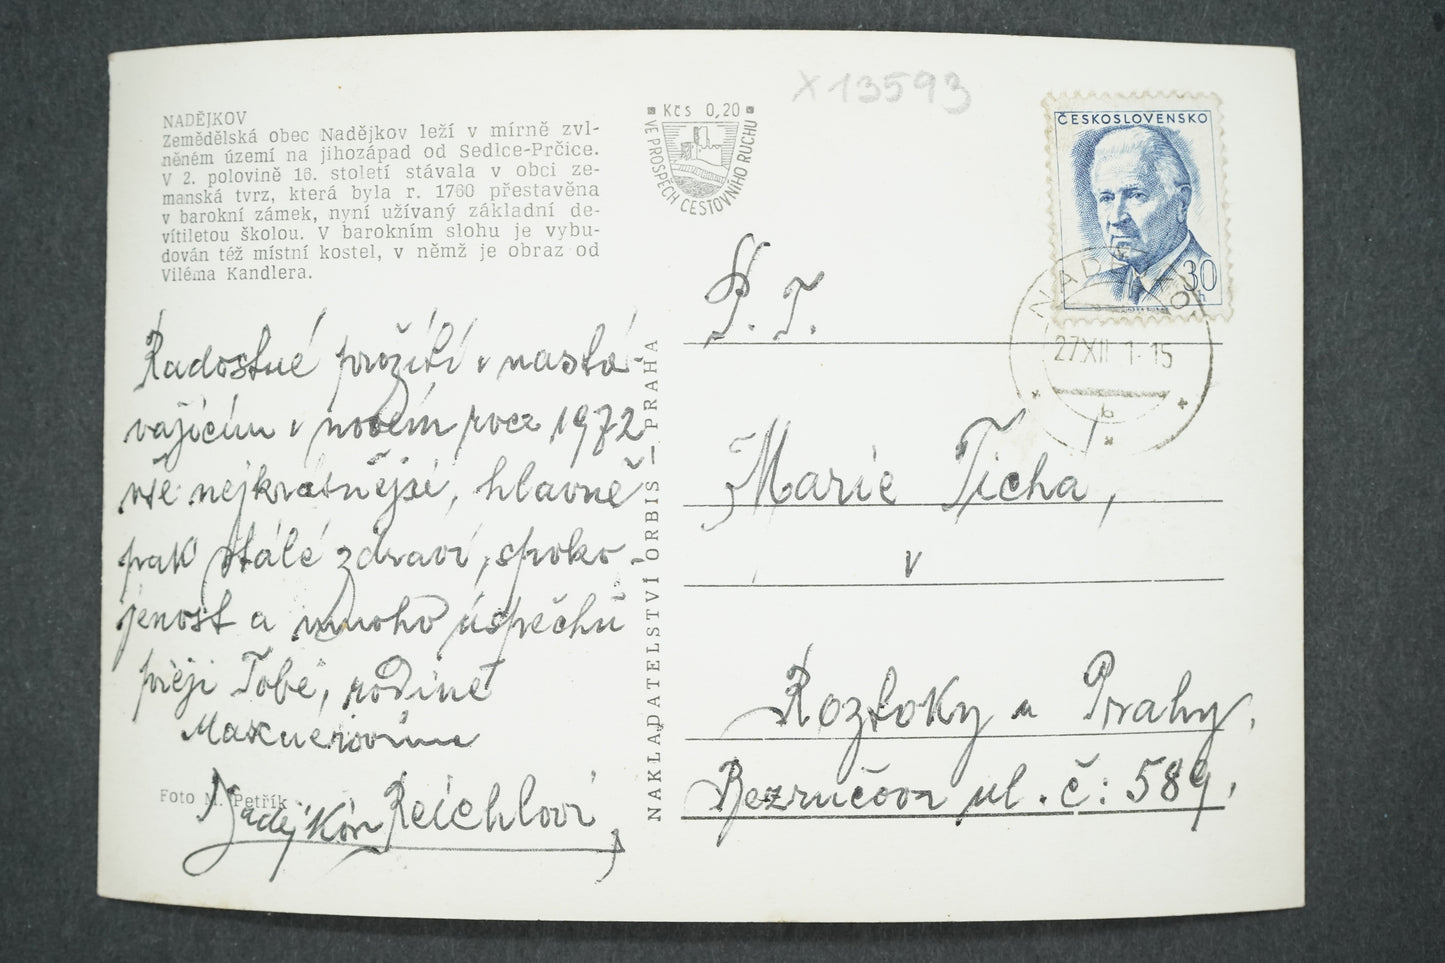 NADĚJKOV
Zemědělská obec Nadějkov leží v mírně zvl-
něném území na jihozápad od Sedlce-Prčice.
V 2. polovině 16. století stávala v obci ze-
manská tvrz, která byla r. 1760 přestavěna
v barokní zámek, nyní užívaný základní de-
vítiletou školou. V barokním slohu je vybu-
dován též místní kostel, v němž je obraz od
Viléma Kandlera.
Radostné prožití v nastá-
vajícím v novém roce 1972
vše nejkrásnější, hlavně
pak stálé zdraví, spoko-
jenost a mnoho úspěchů
přeji Tobě, rodině
Reichlovi
Nadějkov
Foto M. Petřík
NAKLADATELSTVÍ ORBIS — PRAHA
Kčs 0,20
VE PROSPĚCH CESTOVNÍHO RUCHU
X13593
ČESKOSLOVENSKO
30
h
27XII 1-15
b
P. T.
Marie Tichá,
v
Roztoky u Prahy.
Bezručova ul. č: 589.